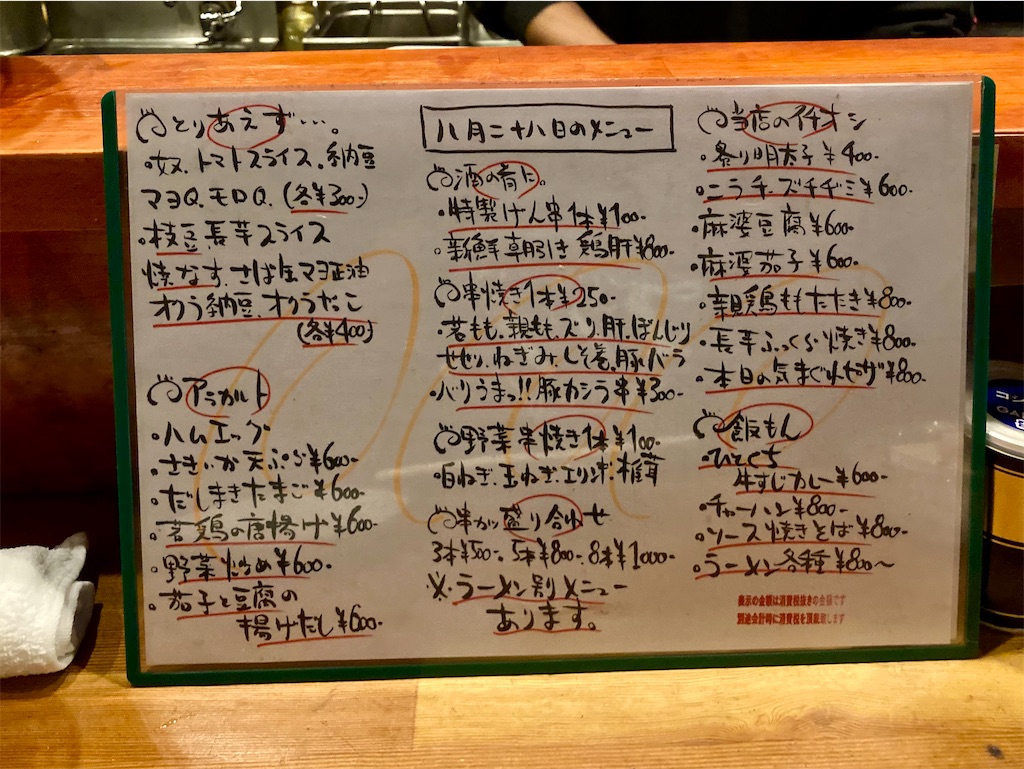 とりあえず…。
・奴.トマトスライス.納豆
マヨQ.モロQ.(各¥300-)
・枝豆 長芋スライス
焼なす.さば生マヨ正油
オクラ納豆.オクラたこ
(各¥400)
アラカルト
・ハムエッグ
・さきいか天ぷら¥600-
・だしまきたまご¥600-
・若鶏の唐揚げ¥600-
・野菜炒め¥600-
・茄子と豆腐の
揚げだし¥600-
八月二十八日のメニュー
酒の肴に。
・特製げん串1本¥100-
・新鮮朝引き鶏肝¥800-
串焼き1本¥250-
・若もも.親もも.ズリ.肝.ぼんじり
せせり.ねぎみ.しそ巻.豚バラ
・バリうまっ!!豚カシラ串¥300-
野菜串焼き1本¥100-
・白ねぎ.玉ねぎ.エリンギ.椎茸
串カツ盛り合わせ
3本¥500-.5本¥800-.8本¥1000-
※.ラーメン別メニュー
あります。
当店のイチオシ
・炙り明太子¥400-
・ニラチーズチヂミ¥600-
・麻婆豆腐¥600-
・麻婆茄子¥600-
・親鶏ももたたき¥800-
・長芋ふっくら焼き¥800-
・本日の気まぐれピザ¥800-
飯もん
・ひとくち
牛すじカレー¥600-
・チャーハン¥800-
・ソース焼きそば¥800-
・ラーメン各種¥800〜
表示の金額は消費税抜きの金額です
別途会計時に消費税を頂戴致します